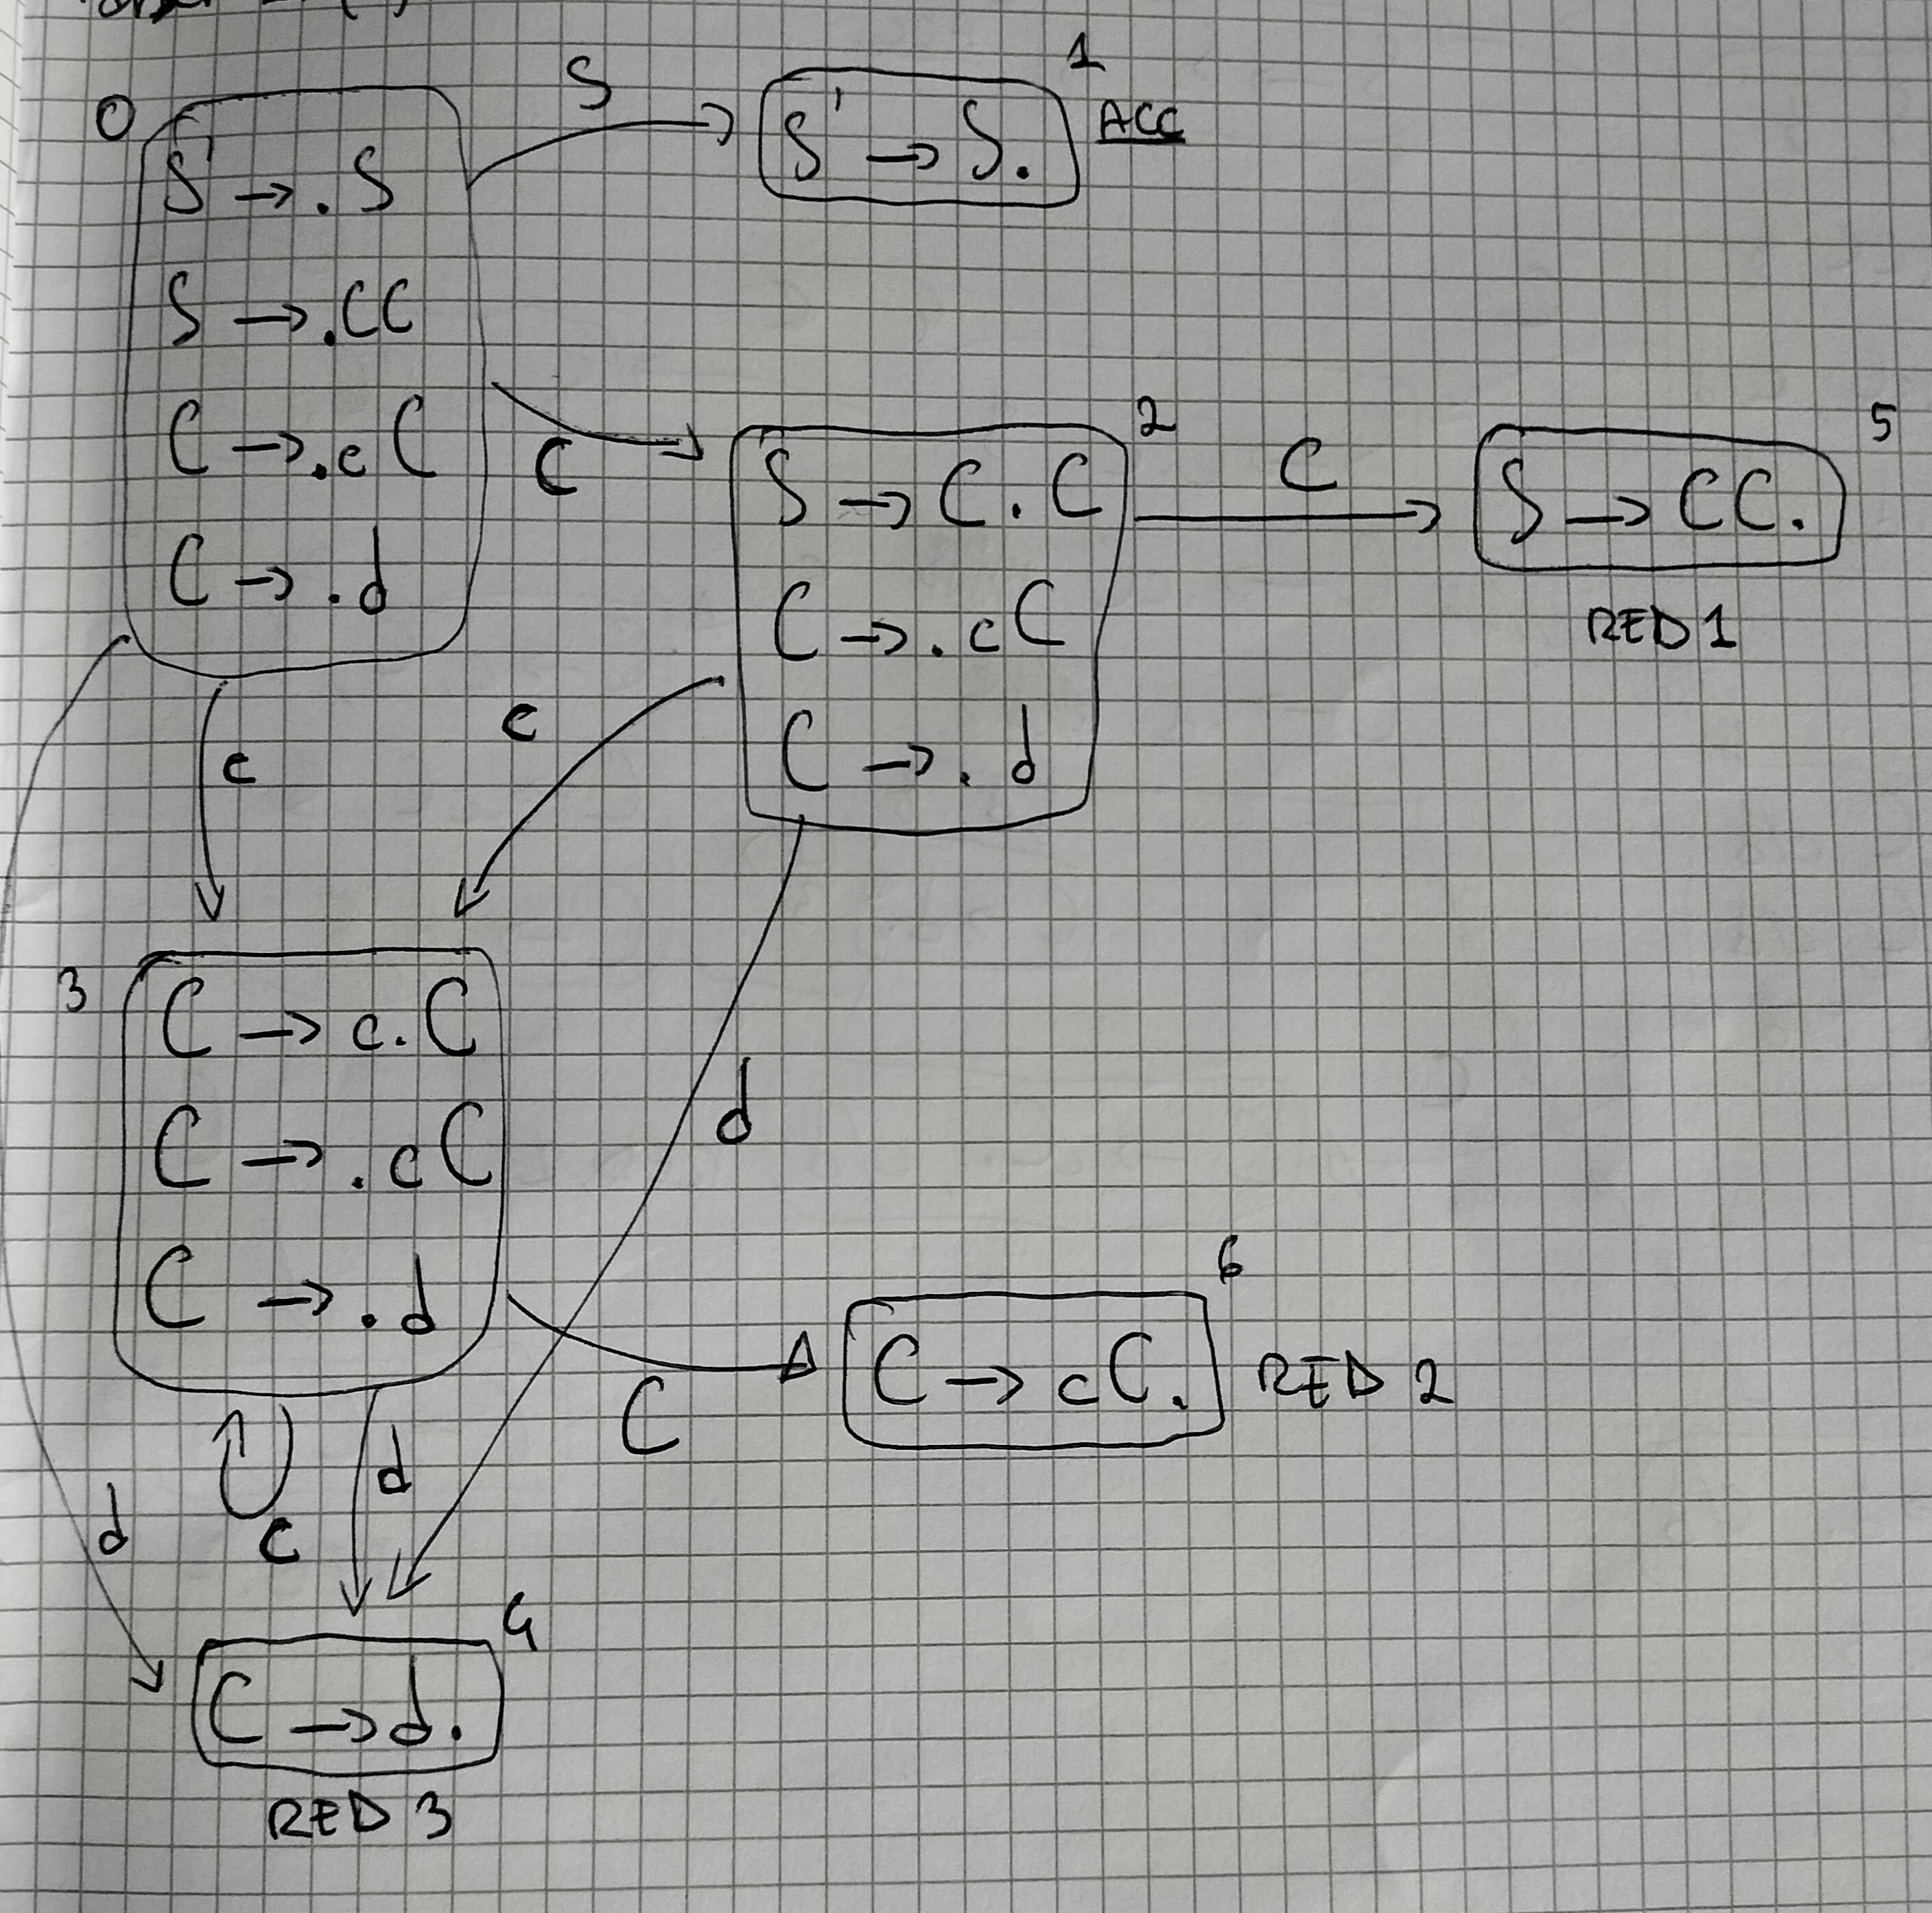 0
S' → .S
S → .CC
C → .cC
C → .d
S
1
S' → S.
ACC
C
2
S → C.C
C → .cC
C → .d
C
5
S → CC.
RED 1
c
c
3
C → c.C
C → .cC
C → .d
d
C
6
C → cC.
RED 2
d
c
d
4
C → d.
RED 3